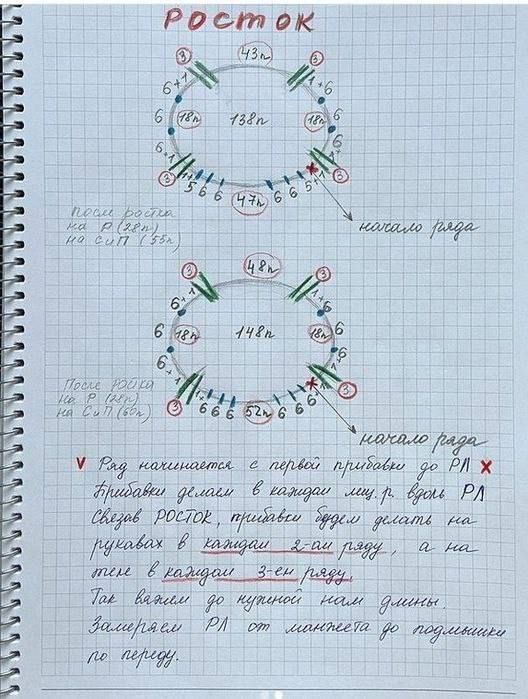 РОСТОК
43п
3 3
6+1 1+6
6 18п 138п 18п 6
6+1 6 1+
3 3
5 6 6 47п 6 6 5+1
После ростка
на Р (28п)
на СиП (55п)
начало ряда
48п
3 3
6+1 1+6
6 18п 148п 18п 6
6+1 6 1+
3 3
6 6 6 52п 6 6 6+1
После Ройка
на Р (28п)
на СиП (60п)
начало ряда
V Ряд начинается с первой прибавки до РЛ X
Прибавки делаем в каждом лиц. р. вдоль РЛ
Связав РОСТОК, прибавки будем делать на
рукавах в каждом 2-ом ряду, а на
теле в каждом 3-ем ряду.
Так вяжем до нужной нам длины.
Замеряем РЛ от манжета до подмышки
по переду.